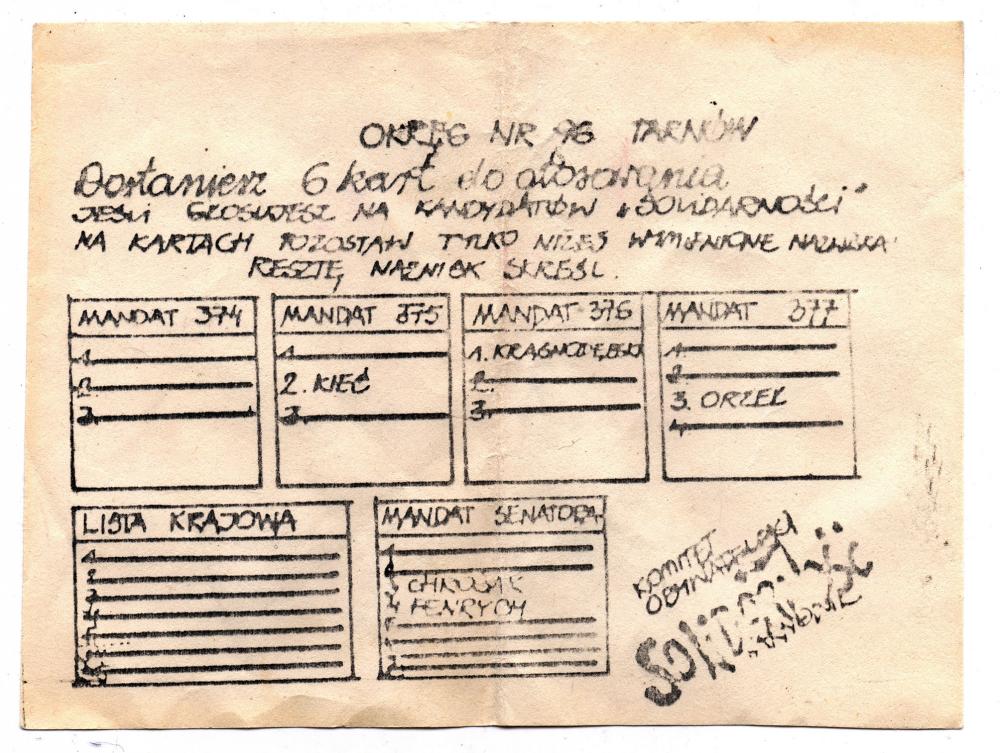 OKRĘG NR 96 TARNÓW
Dostaniesz 6 kart do głosowania
JEŚLI GŁOSUJESZ NA KANDYDATÓW „SOLIDARNOŚCI”
NA KARTACH POZOSTAW TYLKO NIŻEJ WYMIENIONE NAZWISKA
RESZTĘ NAZWISK SKREŚL.
MANDAT 374
1.
2.
3.
MANDAT 375
1.
2. KIEĆ
3.
MANDAT 376
1. KRASNODĘBSKI
2.
3.
MANDAT 377
1.
2.
3. ORZEŁ
4.
LISTA KRAJOWA
1
2
3
MANDAT SENATORA
3
4 FENRYCH
KOMITET
OBYWATELSKI
SOLIDARNOŚĆ